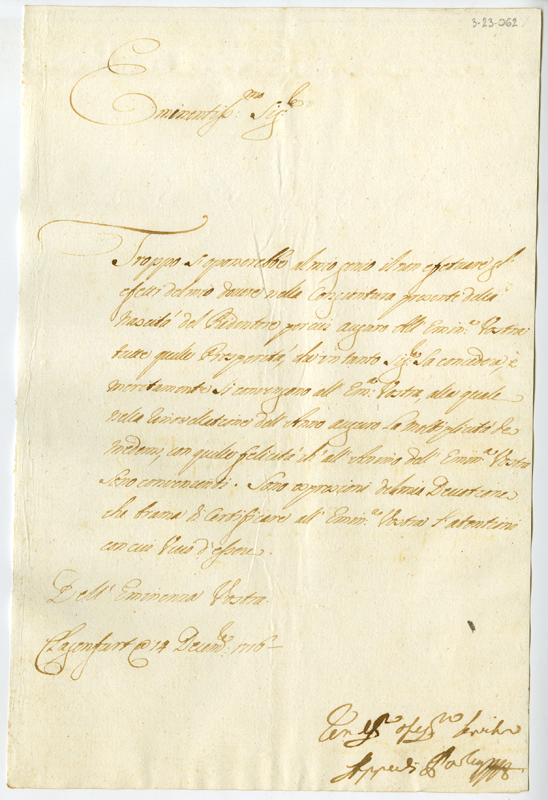 3-23-062
Eminentiss:mo Sig:re
Troppo si oponerebbe al mio genio il non efetuare gl'
efetti del mio dovere nella Congiuntura presente della
Nascita del Redentore per cui auguro All' Emin:a Vostra
tutte quelle Prosperità, che in tanto Sig:re Sa concedere, è
meritamente si convengano all' Em:a Vostra, alla quale
nella rinovelatione dell' Anno auguro la moltiplicità de
medemi, con quelle felicità ch' all' Animo dell' Emin:a Vostra
sono convenienti. Sono espressioni della mia Devotione
che brama di Certificare all' Emin:a Vostra l'atentioni
con cui Vivo d'essere.
Dell' Eminenza Vostra
Clagenfurt @ 14 Decemb:re 1716